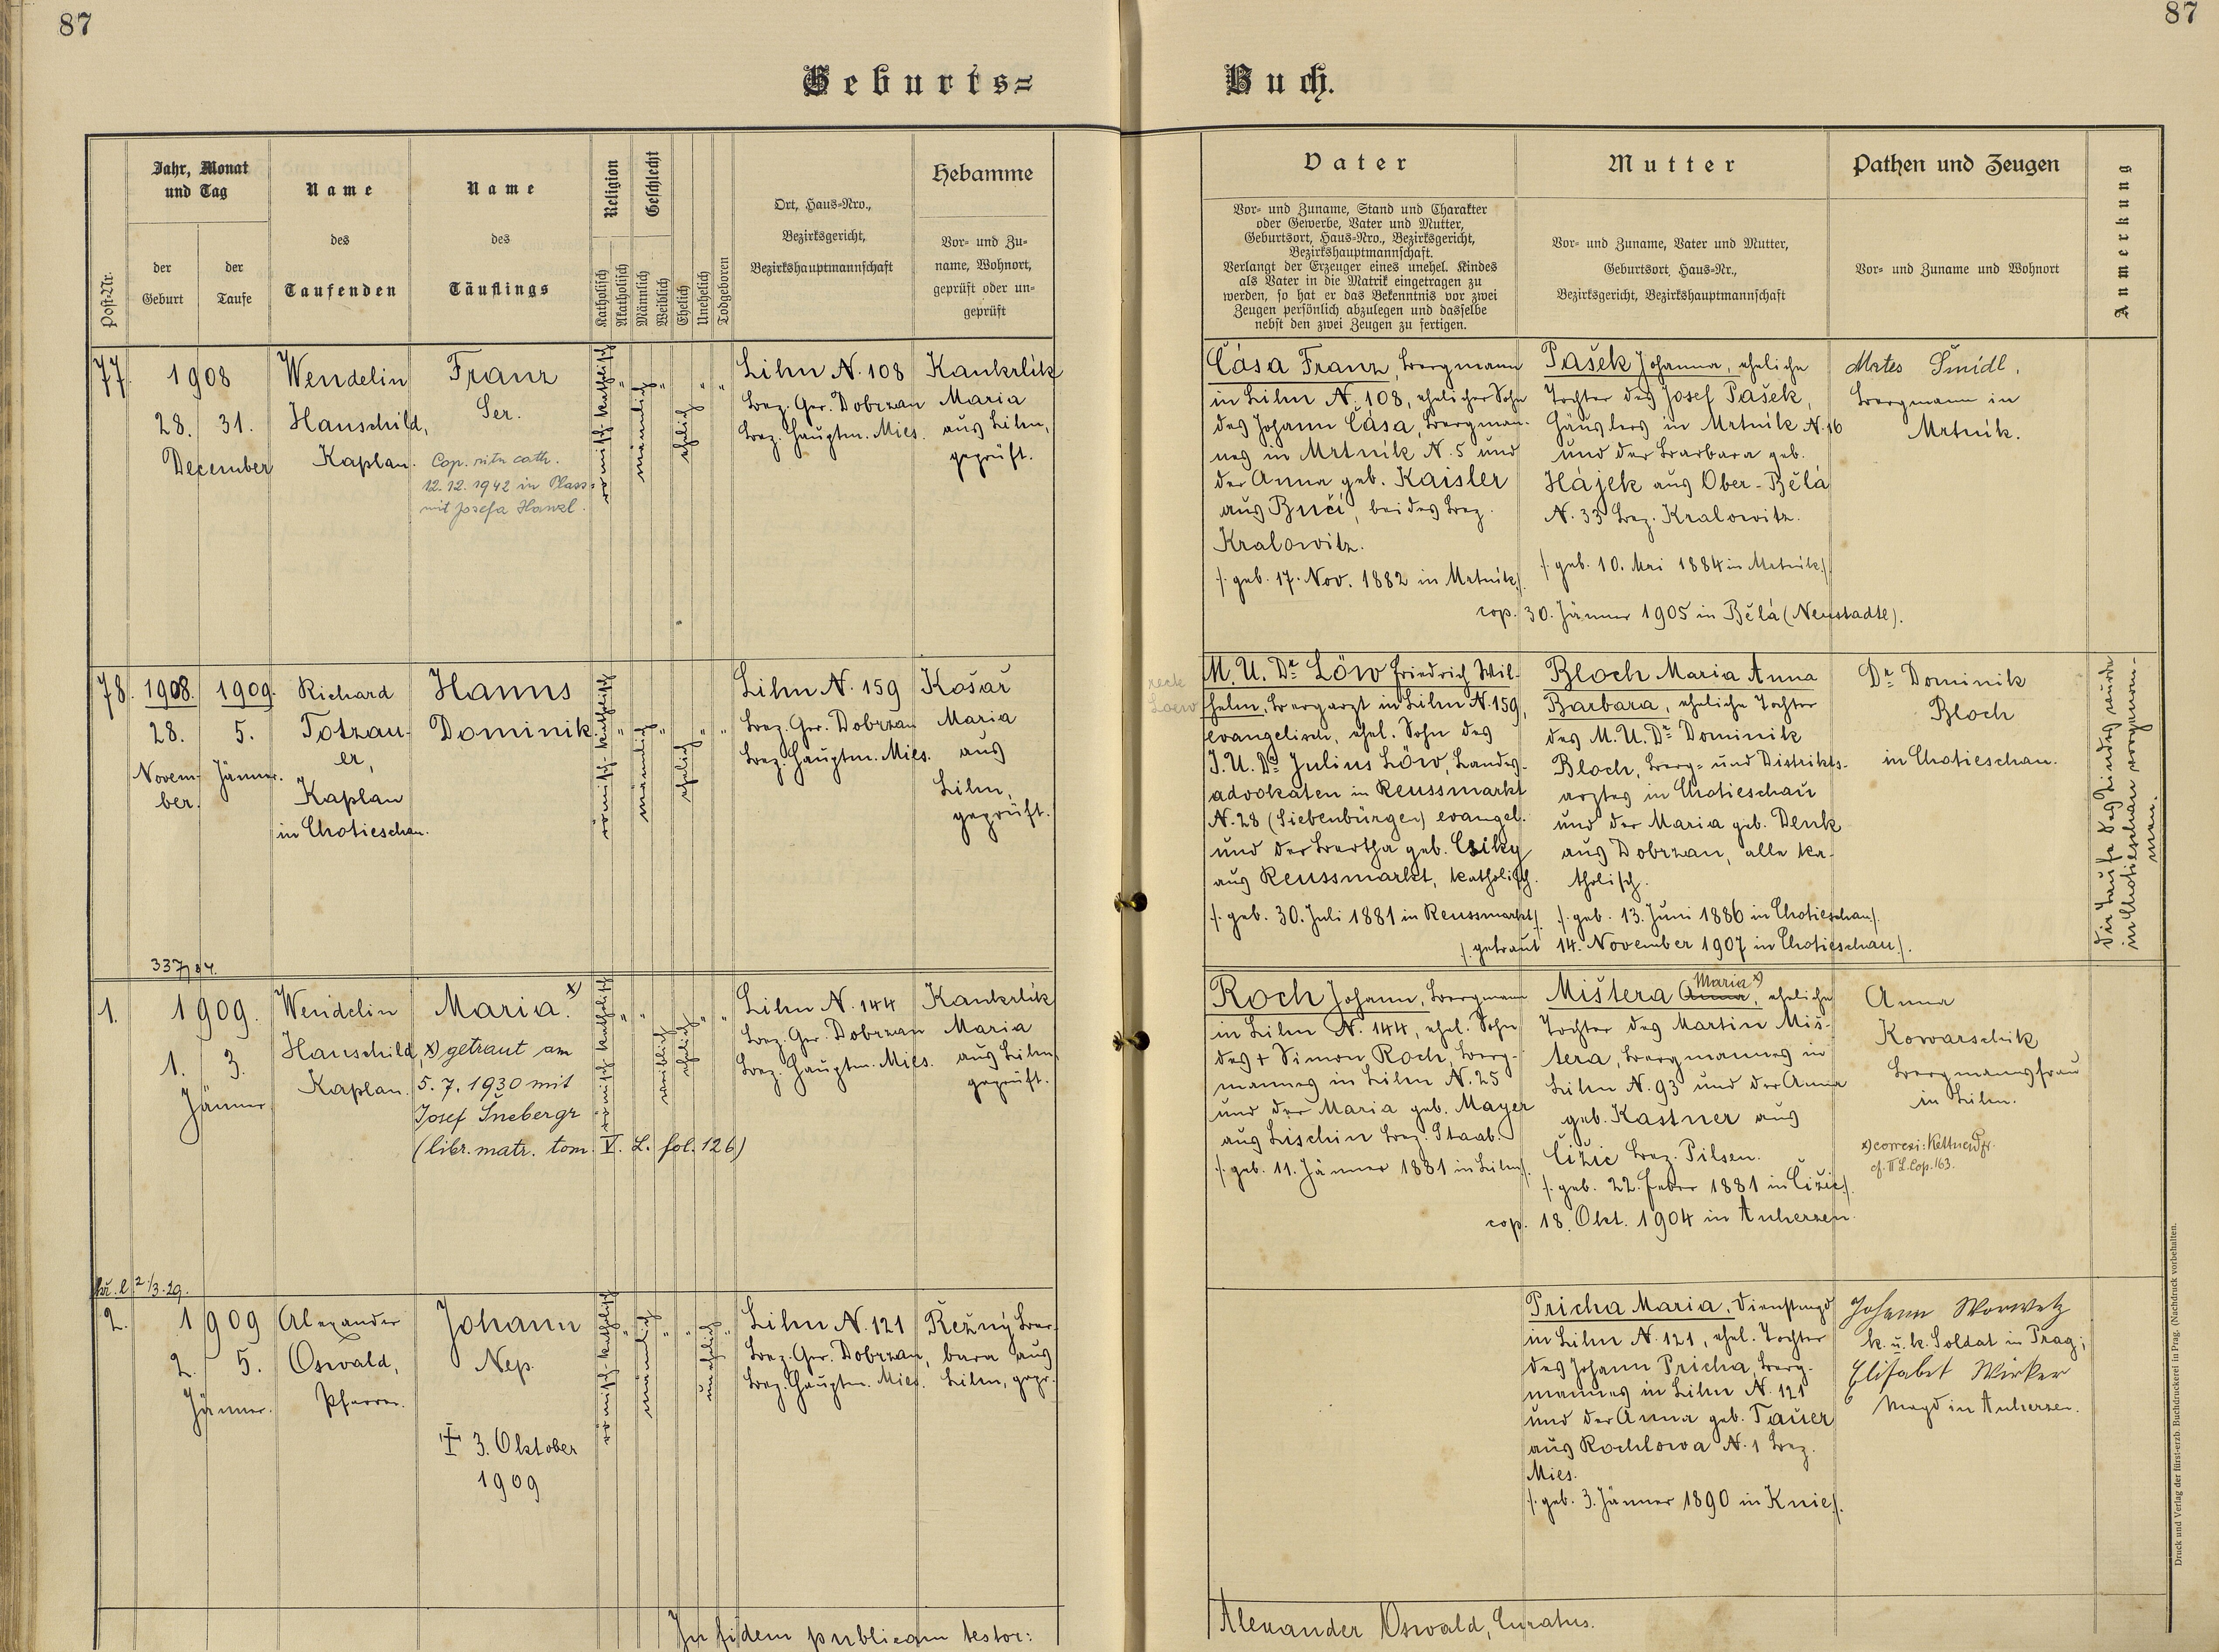 87
87
Geburts=
Buch.
Post-Nr.
Jahr, Monat
und Tag
der
Geburt
der
Taufe
Name
des
Taufenden
Name
des
Täuflings
Religion
Katholisch
Akatholisch
Geschlecht
Männlich
Weiblich
Ehelich
Unehelich
Todgeboren
Ort, Haus=Nro.,
Bezirksgericht,
Bezirkshauptmannschaft
Hebamme
Vor= und Zu=
name, Wohnort,
geprüft oder un=
geprüft
Vater
Vor= und Zuname, Stand und Charakter
oder Gewerbe, Vater und Mutter,
Geburtsort, Haus=Nro., Bezirksgericht,
Bezirkshauptmannschaft.
Verlangt der Erzeuger eines unehel. Kindes
als Vater in die Matrik eingetragen zu
werden, so hat er das Bekenntnis vor zwei
Zeugen persönlich abzulegen und dasselbe
nebst den zwei Zeugen zu fertigen.
Mutter
Vor= und Zuname, Vater und Mutter,
Geburtsort, Haus=Nr.,
Bezirksgericht, Bezirkshauptmannschaft
Pathen und Zeugen
Vor= und Zuname und Wohnort
Anmerkung
77.
1908
28. 31.
December
Wendelin
Hauschild,
Kaplan.
Franz
Ser.
Cop. ritu cath.
12.12.1942 in Plass=
mit Josefa Hanzl.
römisch-katholisch
"
männlich
"
ehelich
"
"
Lihn N. 108
Bez. Ger. Dobrzan
Bez. Hauptm. Mies.
Kankrlik
Maria
aus Lihn,
geprüft.
Čása Franz, Bergmann
in Lihn N. 108, ehelicher Sohn
des Johann Čása, Bergman-
nes in Mrtnik N. 5 und
der Anna geb. Kaisler
aus Bučí, beides Bez.
Kralowitz.
/. geb. 17. Nov. 1882 in Mrtnik./
Pašek Johanna, eheliche
Tochter des Josef Pašek,
Häuslers in Mrtnik N. 16
und der Barbara geb.
Hájek aus Ober-Bělá
N. 33 Bez. Kralowitz.
/. geb. 10. Mai 1884 in Mrtnik./
cop. 30. Jänner 1905 in Bělá (Neustadtl).
Mates Šmídl,
Bergmann in
Mrtnik.
78.
1908. 1909.
28. 5.
Novem- Jänner.
ber.
Richard
Totzau-
er,
Kaplan
in Chotieschau.
Hanns
Dominik.
römisch-katholisch
"
männlich
"
ehelich
"
"
Lihn N. 159
Bez. Ger. Dobrzan
Bez. Hauptm. Mies.
Košař
Maria
aus
Lihn,
geprüft.
recte
Loew
M. U. Dr Löw Friedrich Wil-
helm, Bergarzt in Lihn N. 159,
evangelisch, ehel. Sohn des
J. U. Dr Julius Löw, Landes-
advokaten in Reussmarkt
N. 28 (Siebenbürgen) evangel.
und der Bertha geb. Csiky
aus Reussmarkt, katholisch.
/. geb. 30. Juli 1881 in Reussmarkt/.
Bloch Maria Anna
Barbara, eheliche Tochter
des M. U. Dr Dominik
Bloch, Berg- und Distrikts-
arztes in Chotieschau
und der Maria geb. Denk
aus Dobrzan, alle ka-
tholisch.
/. geb. 13. Juni 1886 in Chotieschau/.
/. getraut 14. November 1907 in Chotieschau/.
Dr Dominik
Bloch
in Chotieschau.
Die Taufe des Kindes wurde
in Chotieschau vorgenom-
men.
337/34.
1.
1909.
1. 3.
Jänner
Wendelin
Hauschild,
Kaplan.
Maria. x)
x) getraut am
5. 7. 1930 mit
Josef Šnebergr
(libr. matr. tom. V. L. fol. 126)
römisch-katholisch
"
"
weiblich
ehelich
"
"
Lihn N. 144
Bez. Ger. Dobrzan
Bez. Hauptm. Mies.
Kankrlik
Maria
aus Lihn,
geprüft.
Roch Johann, Bergmann
in Lihn N. 144, ehel. Sohn
des † Simon Roch, Berg-
mannes in Lihn N. 25
und der Maria geb. Mayer
aus Lischin Bez. Staab.
/. geb. 11. Jänner 1881 in Lihn/.
Maria x)
Mištera Anna, eheliche
Tochter des Martin Miš-
tera, Bergmannes in
Lihn N. 93 und der Anna
geb. Kastner aus
Čižic Bez. Pilsen.
/. geb. 22. Feber 1881 in Čižic/.
cop. 18. Okt. 1904 in Auherzen.
Anna
Kowarschik
Bergmannsfrau
in Lihn.
x) correxi: Kettner
cf. II L. Cop. 163.
2/3. 29.
2.
1909
2. 5.
Jänner.
Alexander
Oswald,
Pfarrer.
Johann
Nep.
† 3. Oktober
1909
römisch-katholisch
"
männlich
"
"
unehelich
"
Lihn N. 121
Bez. Ger. Dobrzan,
Bez. Hauptm. Mies.
Režný Bar-
bara aus
Lihn, gepr.
Pricha Maria, Dienstmagd
in Lihn N. 121, ehel. Tochter
des Johann Pricha, Berg-
mannes in Lihn N. 121
und der Anna geb. Tauer
aus Rochlowa N. 1 Bez.
Mies.
/. geb. 3. Jänner 1890 in Knie/.
Johann Worwetz
k. u. k. Soldat in Prag;
Elisabet Wirker
Magd in Auherzen.
In fidem publicam testor:
Alexander Oswald, Curatus.
Druck und Verlag der fürst-erzb. Buchdruckerei in Prag. (Nachdruck vorbehalten.